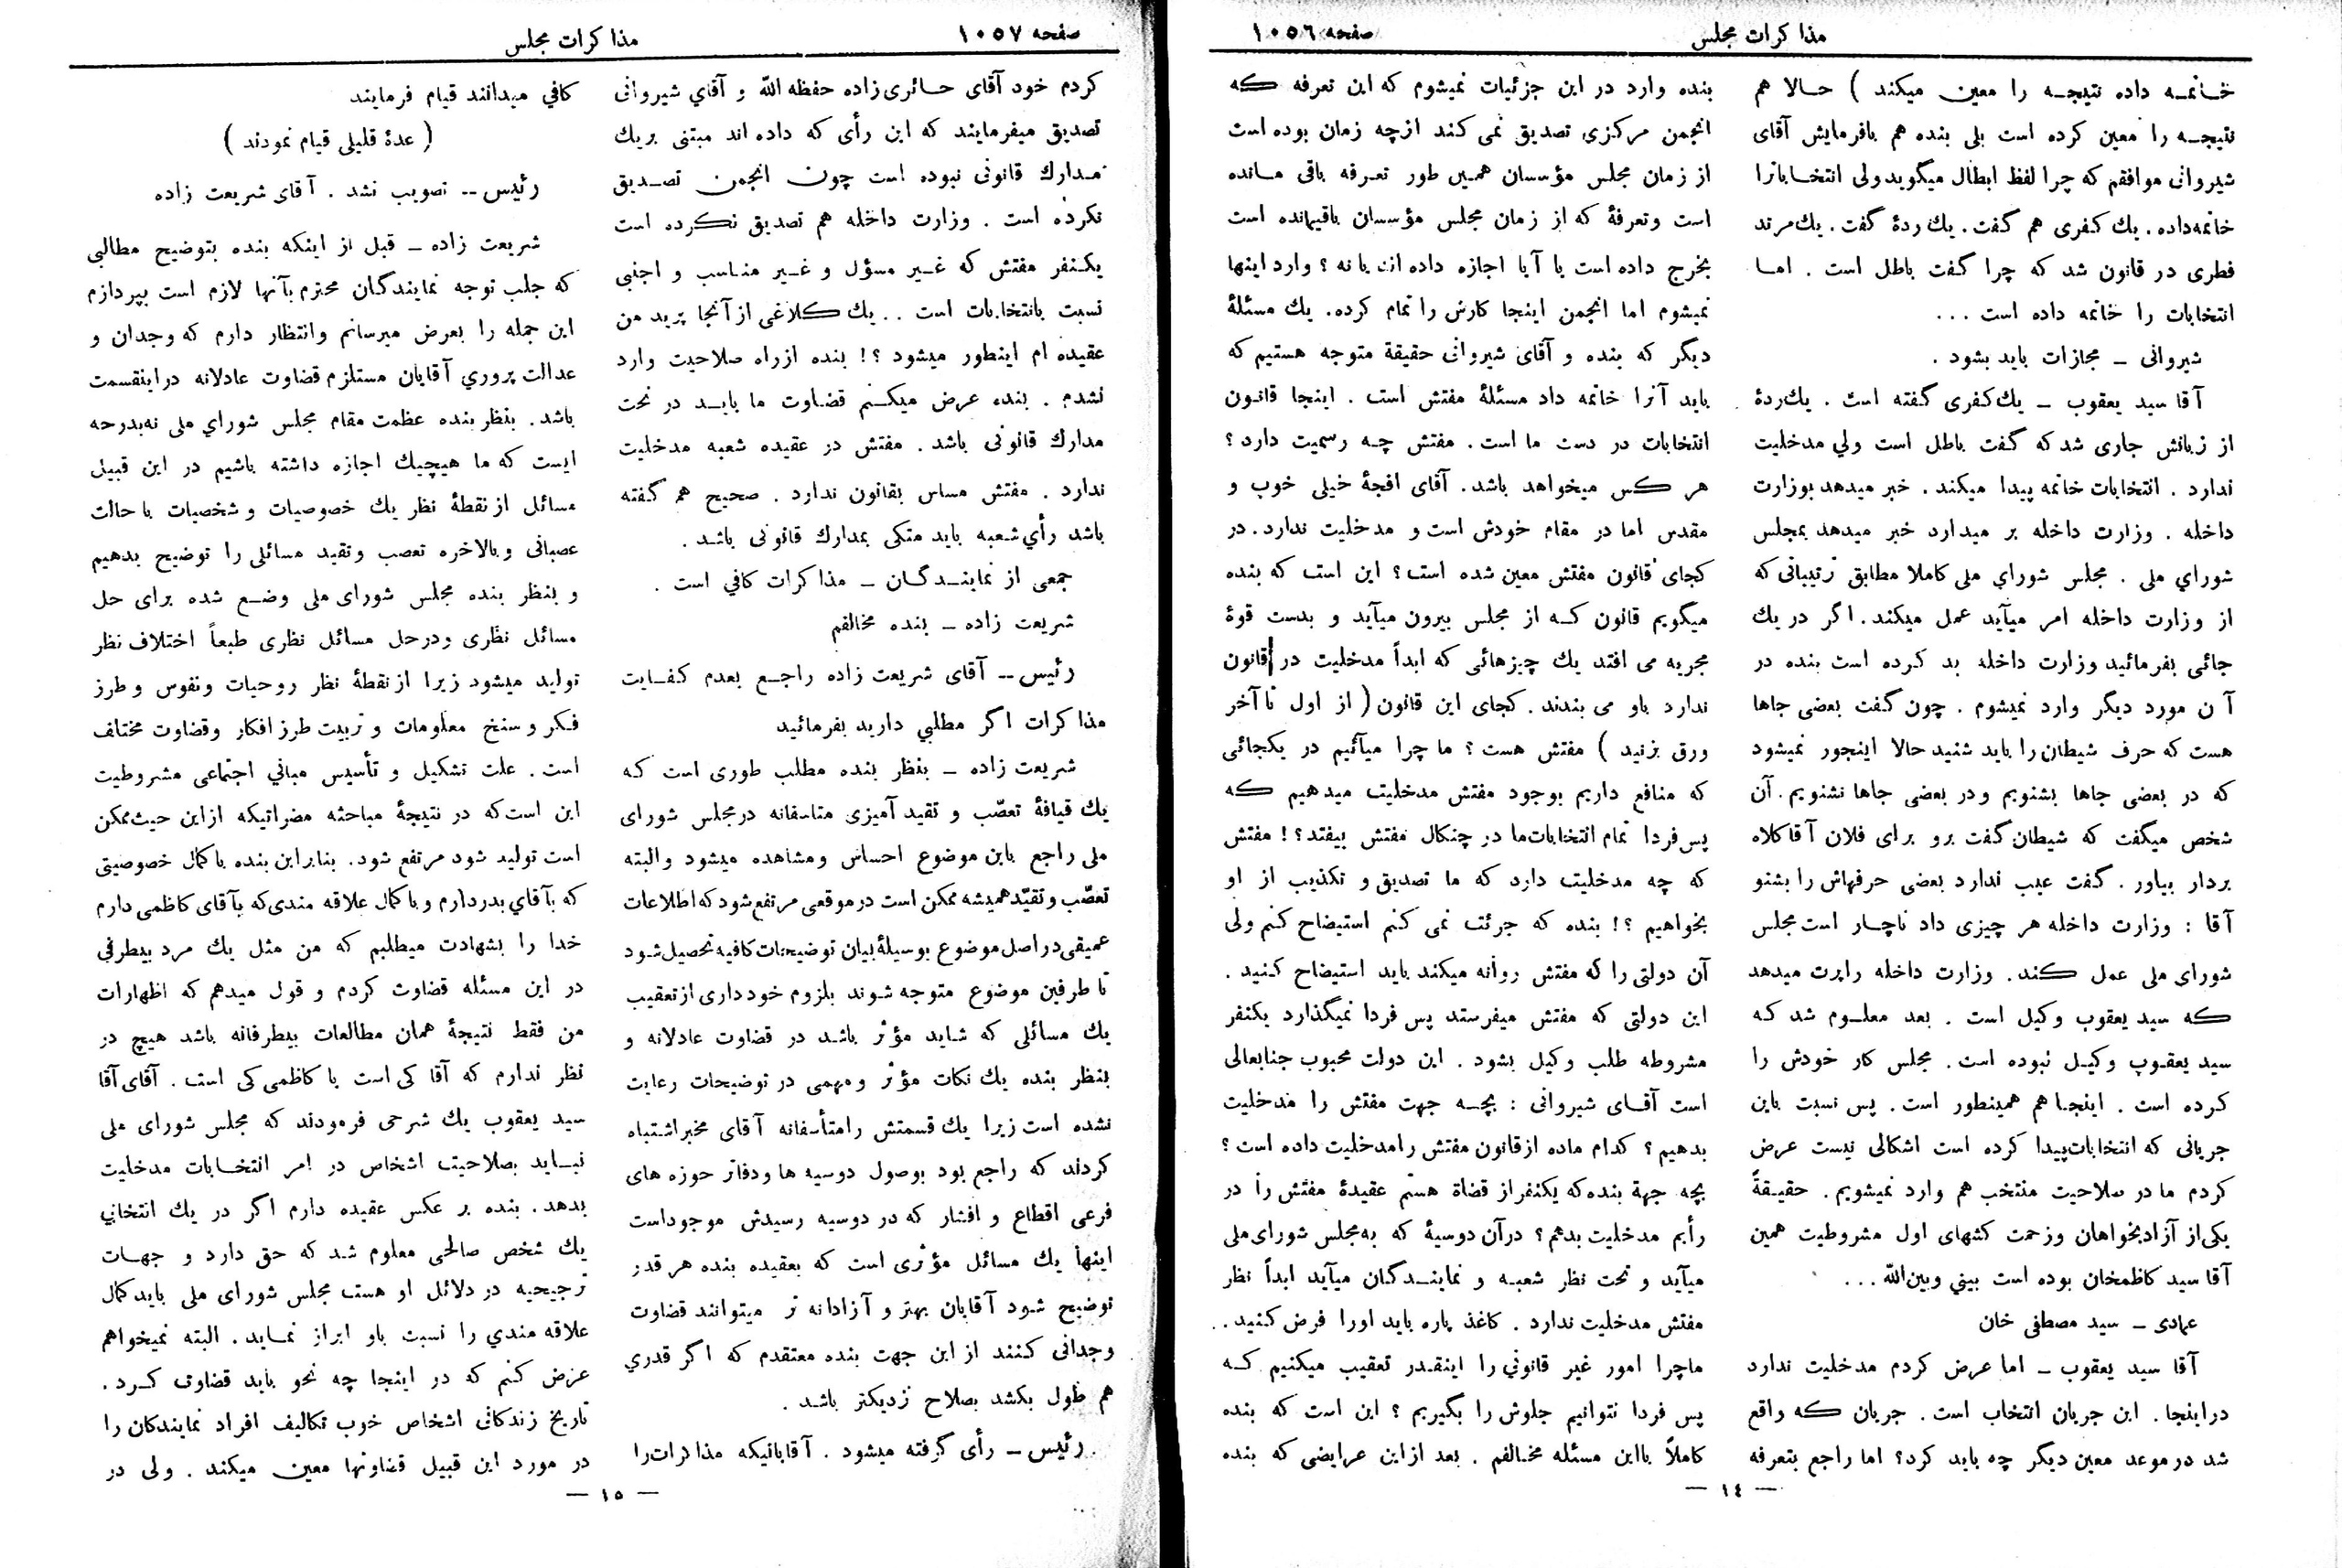 مذاکرات مجلس
صفحه ۱۰۵۶
خـاتمـه داده نتیجـه را معین میکند ) حـالا هم
نتیجـه را معین کرده است بلی بنده هم بافرمایش آقای
شیروانی موافقم که چرا لفظ ابطال میگوید ولی انتخـاباترا
خاتمه داده . یك کفری هم گفت . یك ردۀ گفت . یك مرتد
فطری در قانون شد که چرا گفت باطل است . امـا
انتخابات را خاتمه داده است ...
شیروانی ــ مجازات باید بشود .
آقا سید یعقوب ــ یك کفری گفته است . یك ردۀ
از زبانش جاری شد که گفت باطل است ولي مدخلیت
ندارد . انتخابات خاتمه پیدا میکند . خبر میدهد بوزارت
داخله . وزارت داخله بر میدارد خبر میدهد بمجلس
شوراي ملی . مجلس شوراي ملی کاملا مطابق ترتیباتی که
از وزارت داخله امر میآید عمل میکند . اگر در یك
جائی بفرمائید وزارت داخله بد کرده است بنده در
آن مورد دیگر وارد نمیشوم . چون گفت بعضی جاها
هست که حرف شیطان را باید شنید حالا اینجور نمیشود
که در بعضی جاها بشنویم ودر بعضی جاها نشنویم . آن
شخص میگفت که شیطان گفت برو برای فلان آقا کلاه
بردار بیاور . گفت عیب ندارد بعضی حرفهاش را بشنو
آقا : وزارت داخله هر چیزی داد ناچـار است مجلس
شورای ملی عمل کند . وزارت داخله راپرت میدهد
که سید یعقوب وکیل است . بعد معلـوم شد کـه
سید یعقـوب وکیـل نبوده است . مجلس کار خودش را
کرده است . اینجـا هم همینطور است . پس نسبت باین
جریانی که انتخابات پیدا کرده است اشکالی نیست عرض
کردم ما در صلاحیت منتخب هم وارد نمیشویم . حقیقـةً
یکی از آزادیخواهان وزحمت کشهای اول مشروطیت همین
آقا سید کاظمخان بوده است بیني وبین الله ...
عمادی ــ سید مصطفی خان
آقا سید یعقوب ــ اما عرض کردم مدخلیت ندارد
در اینجا . این جریان انتخاب است . جریان که واقع
شد در موعد معین دیگر چه باید کرد؟ اما راجع بتعرفه
بنده وارد در این جزئیات نمیشوم که این تعرفه که
انجمن مرکزی تصدیق نمی کند از چه زمان بوده است
از زمان مجلس مؤسسان همـین طور تعـرفه باقی مـانده
است و تعرفۀ که از زمان مجلس مؤسسان باقیمانده است
بخرج داده است یا آیا اجازه داده اند یا نه ؟ وارد اینها
نمیشوم اما انجمن اینجا کارش را تمام کرده . یك مسئلۀ
دیگر که بنده و آقای شیروانی حقیقة متوجه هستیم که
باید آنرا خاتمه داد مسئلۀ مفتش است . اینجا قانـون
انتخابات در دست ما است . مفتش چـه رسمیت دارد ؟
هر کس میخواهد باشد . آقای افجۀ خیلی خوب و
مقدس اما در مقام خودش است و مدخلیت ندارد . در
کجای قانون مفتش معین شده است ؟ این است که بنده
میگویم قانون کـه از مجلس بیرون میآید و بدست قوۀ
مجریه می افتد یك چیزهائی که ابداً مدخلیت در قانون
ندارد باو می بندند . کجای این قانون ( از اول تا آخر
ورق بزنید ) مفتش هست ؟ ما چرا میآئیم در یکجائی
که منافع داریم بوجود مفتش مدخلیت میدهیم که
پس فردا تمام انتخابات ما در چنکال مفتش بیفتد ؟ ! مفتش
که چه مدخلیت دارد که ما تصدیق و تکذیب از او
بخواهیم ؟ ! بنده که جرئت نمی کنم استیضاح کنم ولی
آن دولتی را که مفتش روانه میکند باید استیضاح کنید .
این دولتی که مفتش میفرستد پس فردا نمیگذارد یکنفر
مشروطه طلب وکیل بشود . این دولت محبوب جنابعالی
است آقـای شیروانی : بچـه جهت مفتش را مدخلیت
بدهیم ؟ کدام ماده از قانون مفتش را مدخلیت داده است ؟
بچه جهة بنده که یکنفر از قضاة هستم عقیدۀ مفتش را در
رأیم مدخلیت بدهم ؟ در آن دوسیۀ که به مجلس شورای ملی
میآید و تحت نظر شعبـه و نماینـدگان میآید ابداً نظر
مفتش مدخلیت ندارد . کاغذ پاره باید اورا فرض کنید .
ما چرا امور غیر قانونی را اینقـدر تعقیب میکنیم کـه
پس فردا نتوانیم جلوش را بگیریم ؟ این است که بنده
کاملاً بااین مسئله مخـالفم . بعد از این عرایضی که بنده
ــ ۱٤ ــ
صفحه ۱۰۵۷
مذاکرات مجلس
کردم خود آقای حـائری زاده حفظه الله و آقاي شیروانی
تصدیق میفرمایند که این رأی که داده اند مبتنی بریك
مـدارك قانونی نبوده است چون انجمن تصـدیق
نکرده است . وزارت داخله هم تصدیق نکرده است
یکنفر مفتش که غـیر مسؤل و غـیر مناسب و اجنبی
نسبت بانتخابات است . . یك کلاغی از آنجا پرید من
عقیده ام اینطور میشود ؟ ! بنده ازراه صلاحیت وارد
نشدم . بنده عرض میکـنم قضـاوت ما بایـد در تحت
مدارك قانونی باشد . مفتش در عقیده شعبه مدخلیت
ندارد . مفتش مساس بقانون ندارد . صحیح هم گفته
باشد رأي شعبه باید متکی بمدارك قانونی باشـد .
جمعی از نماینـدگـان ــ مذاکرات کافي است .
شریعت زاده ــ بنده مخالفم
رئیس ــ آقای شریعت زاده راجـع بعدم کفـایت
مذاکرات اگر مطلبي دارید بفرمائید
شریعت زاده ــ بنظر بنده مطلب طوری است که
یك قیافۀ تعصّب و تقید آمیزی متاسفانه در مجلس شورای
ملی راجع باین موضوع احساس و مشاهده میشود والبته
تعصّب و تقیّد همیشه ممکن است در موقعی مرتفع شود که اطلاعات
عمیقی در اصل موضوع بوسیلۀ بیان توضیحات کافیه تحصیل شود
تا طرفین موضوع متوجه شوند بلزوم خود داری از تعقیب
یك مسائلی که شاید مؤثر باشد در قضاوت عادلانه و
بنظر بنده یك نکات مؤثر ومهمی در توضیحات رعایت
نشده است زیرا یك قسمتش را متأسفانه آقای مخبر اشتباه
کردند که راجع بود بوصول دوسیه ها ودفاتر حوزه های
فرعی اقطاع و افشار که در دوسیه رسیدش موجود است
اینها یك مسائل مؤثری است که بعقیده بنده هر قدر
توضیح شود آقایان بهتر و آزادانه تر میتوانند قضاوت
وجدانی کنند از این جهت بنده معتقدم که اگر قدري
هم طول بکشد بصلاح نزدیکتر باشد .
رئیس ــ رأی گرفته میشود . آقایانیکه مذاکرات را
کافي میدانند قیام فرمایند
( عدۀ قلیلی قیام نمودند )
رئیس ــ تصویب نشد . آقای شریعت زاده
شریعت زاده ــ قبل از اینکه بنده بتوضیح مطالبی
که جلب توجه نمایندگان محترم بآنها لازم است بپردازم
این جمله را بعرض میرسانم وانتظار دارم که وجدان و
عدالت پروري آقایان مستلزم قضاوت عادلانه در اینقسمت
باشد . بنظر بنده عظمت مقام مجلس شوراي ملی نه بدرجه
ایست که ما هیچیك اجازه داشته باشیم در این قبیل
مسائل از نقطۀ نظر یك خصوصیات و شخصیات با حالت
عصبانی وبالاخره تعصب وتقید مسائلی را توضیح بدهیم
و بنظر بنده مجلس شورای ملی وضـع شده برای حل
مسائل نظری ودرحل مسائل نظری طبعاً اختلاف نظر
تولید میشود زیرا از نقطۀ نظر روحیات ونفوس و طرز
فکر و سنخ معلومات و تربیت طرز افکار وقضاوت مختلف
است . علت تشکیل و تأسیس مباني اجتماعی مشروطیت
این است که در نتیجۀ مباحثه مضراتیکه ازاین حیث ممکن
است تولید شود مرتفع شود . بنابراین بنده با کمال خصوصیتی
که بآقاي بدر دارم و با کمال علاقه مندی که بآقای کاظمی دارم
خدا را بشهادت میطلبم که من مثل یك مرد بیطرفی
در این مسئله قضاوت کردم و قول میدهم که اظهارات
من فقط نتیجۀ همان مطالعات بیطرفانه باشد هیچ در
نظر ندارم که آقا کی است یا کاظمی کی است . آقای آقا
سید یعقوب یك شرحی فرمودند که مجلس شورای ملی
نبـاید بصلاحیت اشخاص در امر انتخـابات مدخلیت
بدهد . بنده بر عکس عقیده دارم اگر در یك انتخابي
یك شخص صالحی معلوم شـد که حق دارد و جهـات
ترجیحیه در دلائل او هست مجلس شورای ملی باید کمال
علاقه مندي را نسبت باو ابراز نمـاید . البته نمیخواهم
عرض کنم که در اینجا چه نحو باید قضاوت کـرد .
تاریخ زندکانی اشخاص خوب تکالیف افراد نمایندکان را
در مورد این قبیل قضاوتها معین میکند . ولی در
ــ ۱۵ ــ